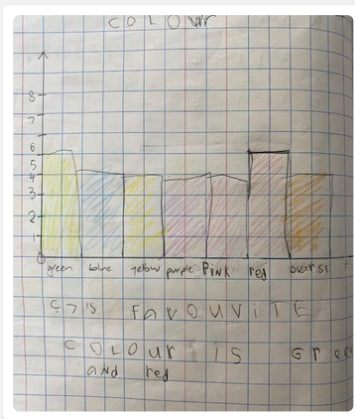 COLOUr
8
7
6
5
4
3
2
1
0
green blue yellow purple PiNk red
S7's FaVOUViTE
COLOUr iS Gree
aND red